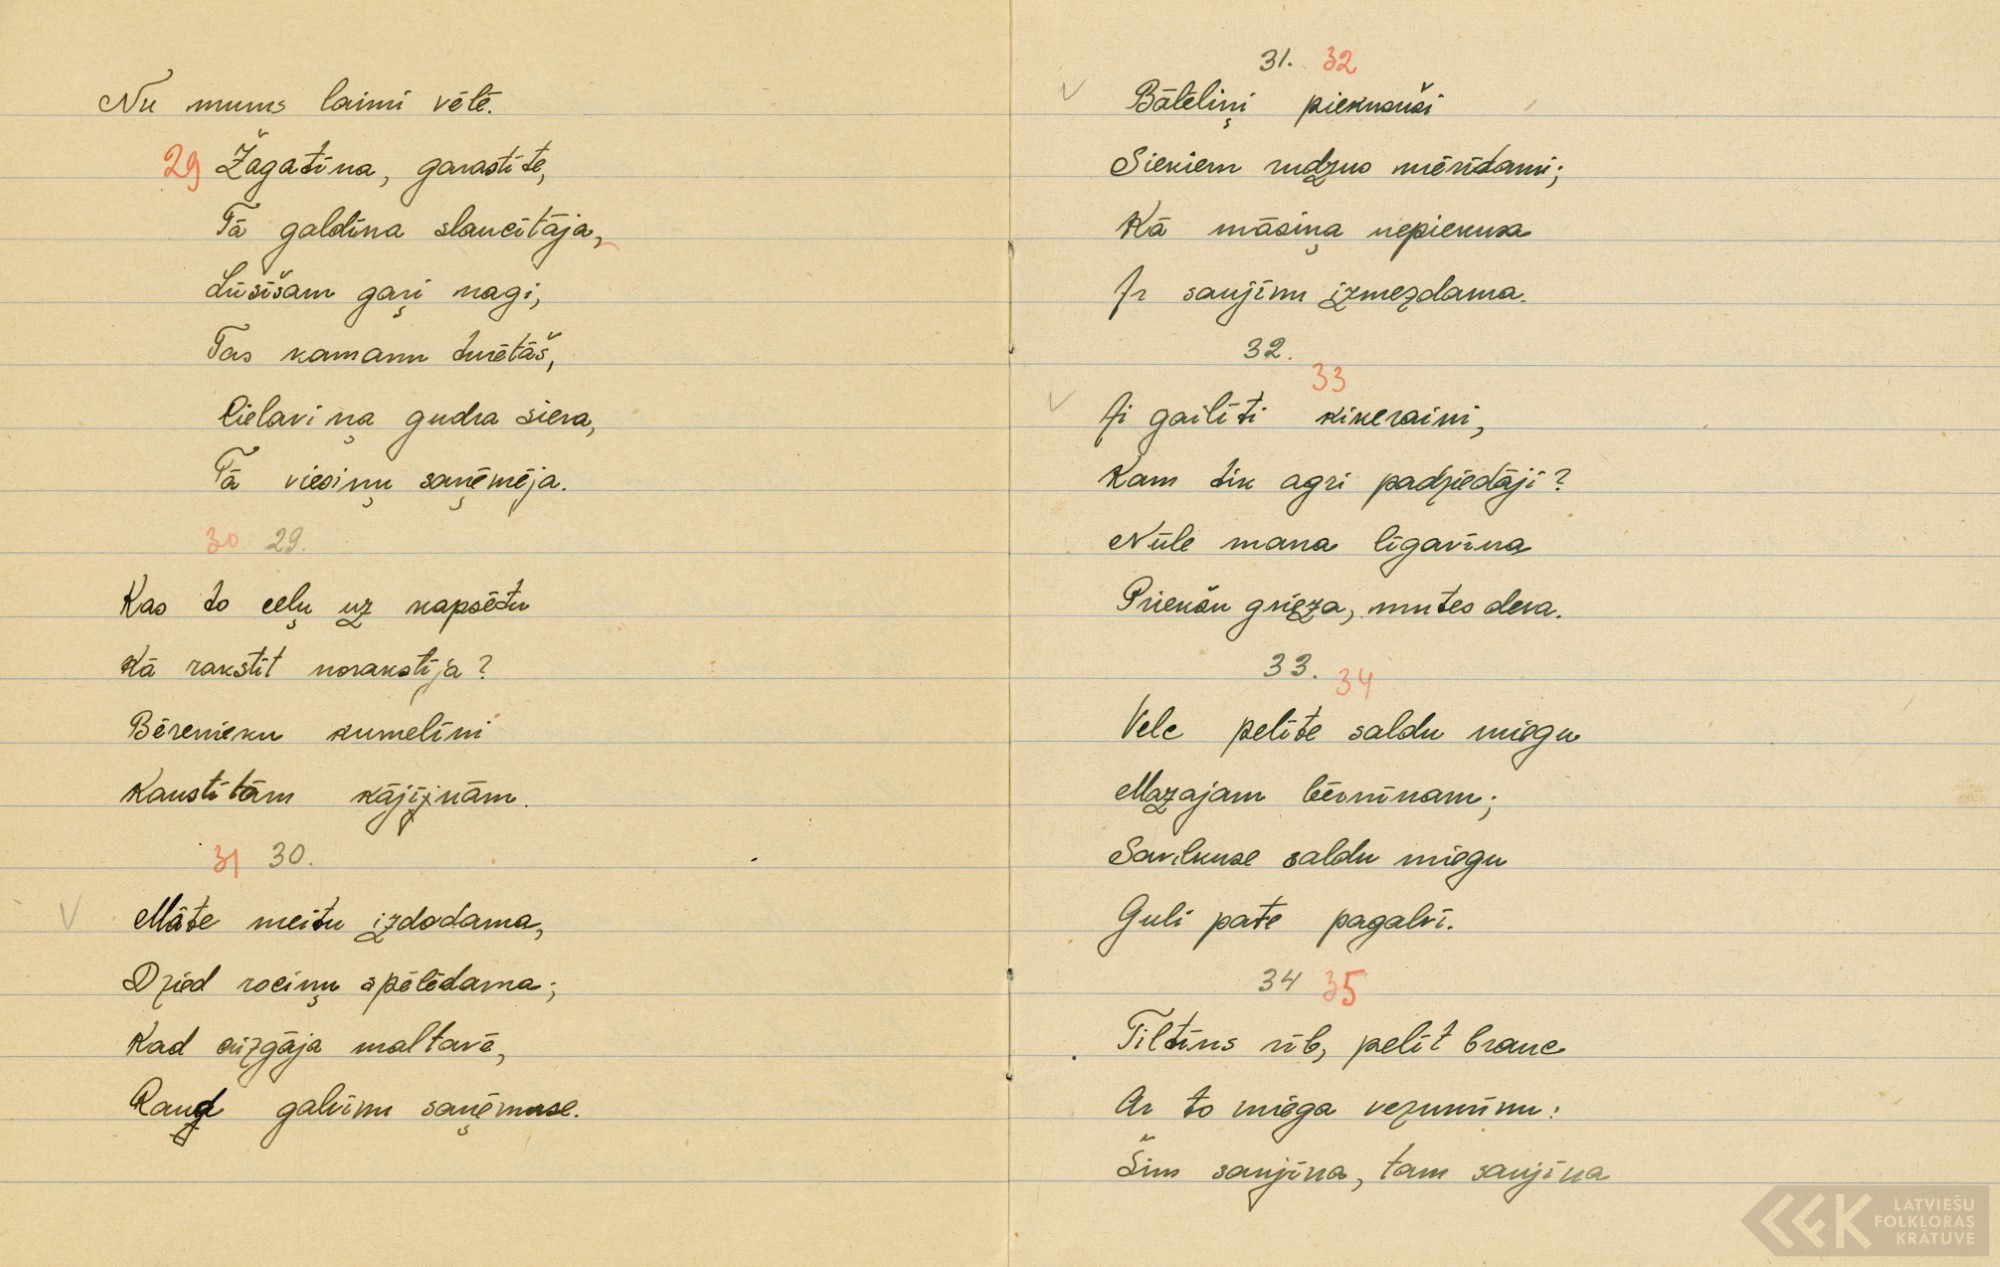 Nu mums laimi vēlē.
29 Žagatīna, garastīte,
Tā galdīna slaucītāja,
Lūsīšam gaŗi nagi,
Tas kamanu turētāš,
Cielaviņa gudra sieva,
Tā viesiņu saņēmēja.
30 29.
Kas to ceļu uz kapsētu
Kā rakstīt norakstīja?
Bērenieku kumelīni
Kaustītām kājījnām.
31 30.
Māte meitu izdodama,
Dzied rociņu spēlēdama;
Kad aizgāja maltavē,
Raud galvīnu saņēmuse.
31. 32
Bāleliņi piekusuši
Siekiem rudzus mērīdami;
Kā māsiņa nepiekusa
Ar saujīnu izmezdama.
32.
33
Ai gailīti kikeraini,
Kam tik agri padziedāji?
Nūle mana līgavīna
Priekšu grieza, mutes deva.
33. 34
Velc pelīte saldu miegu
Mazajam bērnīnam;
Savilkuse saldu miegu
Guli pate pagalvī.
34 35
Tiltīns rīb, pelīt brauc
Ar to miega vezumīnu:
Šim saujīna, tam saujīna
LATVIEŠU
FOLKLORAS
KRĀTUVE